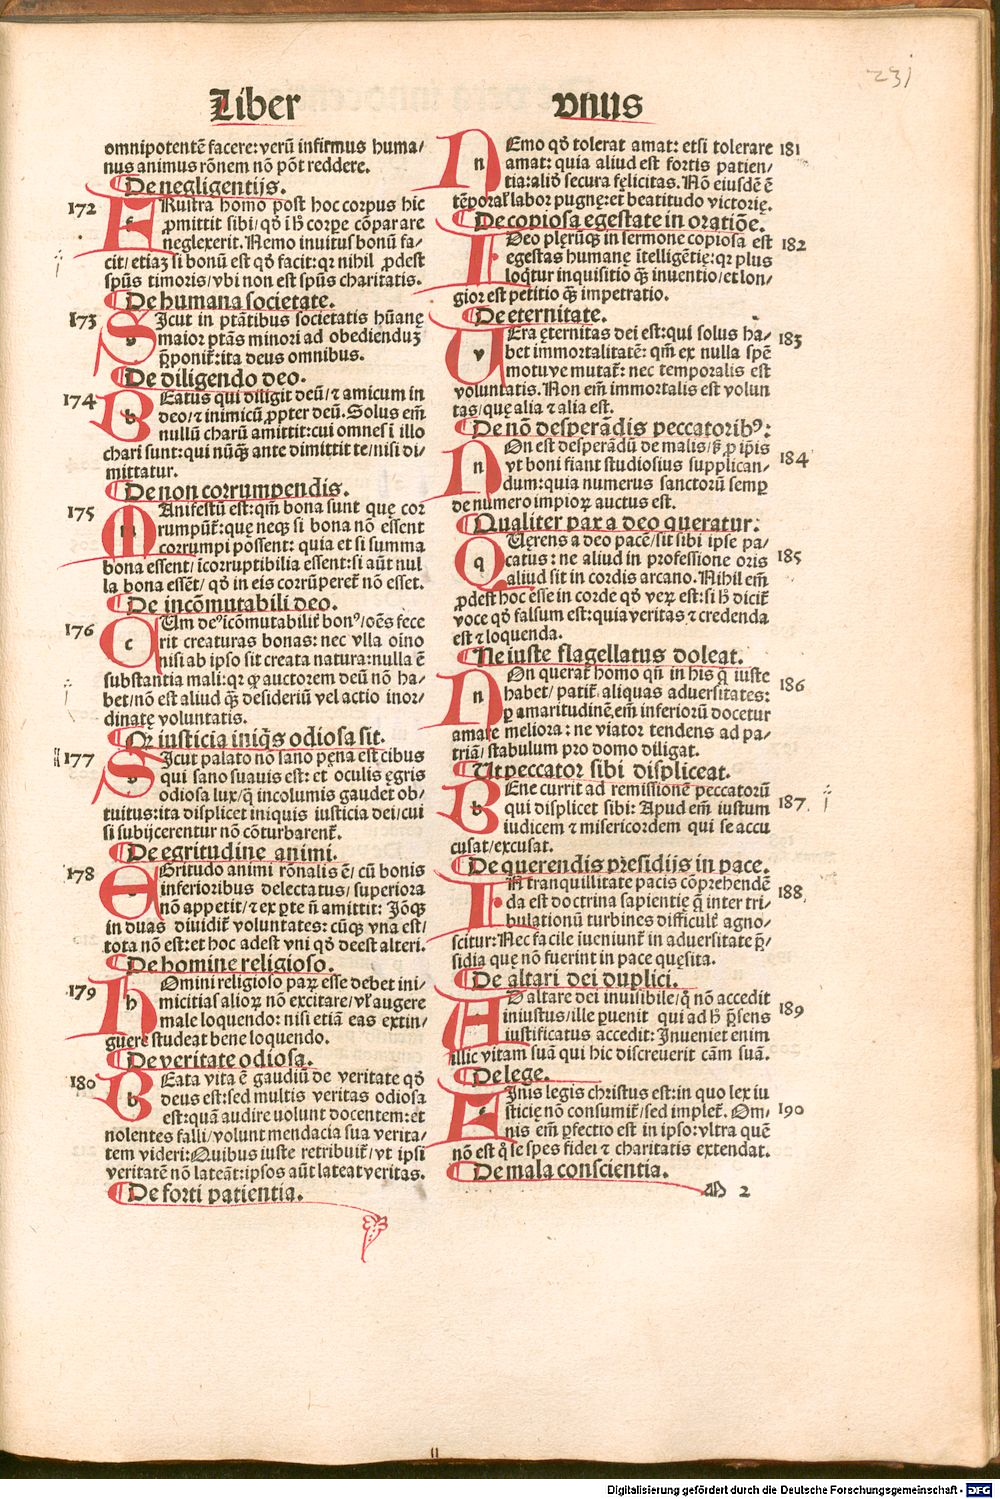 231
Liber vnus
omnipotentē facere: verū infirmus huma/
nus animus rōnem nō pōt reddere.
De negligentijs.
172 FRustra homo post hoc corpus hic
ꝓmittit sibi/ qđ ī hͦ corꝑe cōparare
neglexerit. Nemo inuitus bonū fa/
cit/ etiaꝫ si bonū est qđ facit: qꝛ nihil ꝓdest
spūs timoris/ vbi non est spūs charitatis.
De humana societate.
173 SIcut in ptātibus societatis hūanę
maior ptās minori ad obedienduꝫ
p̄ponit᷑: ita deus omnibus.
De diligendo deo.
174 BEatus qui diligit deū/ ⁊ amicum in
deo/ ⁊ inimicū ꝓpter deū. Solus em̄
nullū charū amittit: cui omnes ī illo
chari sunt: qui nūꝗ̄ ante dimittit te/ nisi di/
mittatur.
De non corrumpendis.
175 MAnifestū est: qm̄ bona sunt quę cor
rumpūt᷑: quę neqꝫ si bona nō essent
corrumpi possent: quia et si summa
bona essent/ īcorruptibilia essent: si aūt nul
la bona essēt/ qđ in eis corrūperet᷑ nō esset.
De incōmutabili deo.
176 CUm deꝰ īcōmutabilit᷑ bonꝰ/ oēs fece
rit creaturas bonas: nec vlla oīno
nisi ab ipso sit creata natura: nulla ē
substantia mali: qꝛ ꝙ auctorem deū nō ha/
bet/ nō est aliud ꝗ̄ desideriū vel actio inor/
dinatę voluntatis.
Qꝛ iusticia iniqͥs odiosa sit.
177 SIcut palato nō sano pęna est cibus
qui sano suauis est: et oculis ęgris
odiosa lux/ q̄ incolumis gaudet ob/
tuitus: ita displicet iniquis iusticia dei/ cui
si subijcerentur nō cōturbarent᷑.
De egritudine animi.
178 EGritudo animi rōnalis ē/ cū bonis
inferioribus delectatus/ superiora
nō appetit/ ⁊ ex ꝑte ñ amittit: Iōꝗꝫ
in duas diuidit᷑ voluntates: cūꝗꝫ vna est/
tota nō est: et hoc adest vni qđ deest alteri.
De homine religioso.
179 HOmini religioso paꝝ esse debet ini/
micitias alioꝝ nō excitare/ vl᷑ augere
male loquendo: nisi etiā eas extin/
guere studeat bene loquendo.
De veritate odiosa.
180 BEata vita ē gaudiū de veritate qđ
deus est: sed multis veritas odiosa
est: quā audire uolunt docentem: et
nolentes falli/ volunt mendacia sua verita/
tem videri: Quibus iuste retribuit᷑/ vt ipsi
veritatē nō lateāt: ipsos aūt lateat veritas.
De forti patientia.
NEmo qđ tolerat amat: etsi tolerare 181
amat: quia aliud est fortis patien/
tia: aliđ secura fęlicitas. Nō eiusdē ē
tēporal᷑ labor pugnę: et beatitudo victorię.
De copiosa egestate in oratiōe.
IDeo plerūꝗꝫ in sermone copiosa est 182
egestas humanę ītelligētię: qꝛ plus
loqͥtur inquisitio ꝗ̄ inuentio/ et lon/
gior est petitio ꝗ̄ impetratio.
De eternitate.
VEra ęternitas dei est: qui solus ha/ 183
bet immortalitatē: qm̄ ex nulla spē
motuve mutat᷑: nec temporalis est
voluntatis. Non em̄ immortalis est volun
tas/ quę alia ⁊ alia est.
De nō desperādis peccatoribꝰ:
NOn est desperādū de malis/ sꝫ ꝓ ip̄is 184
vt boni fiant studiosius supplican/
dum: quia numerus sanctorū semꝑ
de numero impioꝝ auctus est.
Qualiter pax a deo queratur:
QUęrens a deo pacē/ sit sibi ipse pa/
catus: ne aliud in professione oris 185
aliud sit in cordis arcano. Nihil em̄
ꝓdest hoc esse in corde qđ veꝝ est: si hͦ dicit᷑
voce qđ falsum est: quia veritas ⁊ credenda
est ⁊ loquenda.
Ne iuste flagellatus doleat.
NOn querat᷑ homo qn̄ in his q̄ iuste
habet/ patit᷑ aliquas aduersitates: 186
ꝑ amaritudinē em̄ inferiorū docetur
amare meliora: ne viator tendens ad pa/
triā/ stabulum pro domo diligat.
Ut peccator sibi displiceat.
BEne currit ad remissionē peccatorū
qui displicet sibi: Apud em̄ iustum 187
iudicem ⁊ misericordem qui se accu
cusat/ excusat.
De querendis presidijs in pace.
IN tranquillitate pacis cōprehendē
da est doctrina sapientię q̄ inter tri/ 188
bulationū turbines difficult᷑ agno/
scitur: Nec facile iueniunt᷑ in aduersitate p̄/
sidia quę nō fuerint in pace quęsita.
De altari dei duplici.
AD altare dei inuisibile/ q̄ nō accedit
iniustus/ ille ꝑuenit qui ad hͦ p̄sens 189
iustificatus accedit: Inueniet enim
illic vitam suā qui hic discreuerit cām suā.
De lege.
FInis legis christus est: in quo lex iu
sticię nō consumit᷑/ sed implet᷑. Om/ 190
nis em̄ ꝑfectio est in ipso: vltra quē
nō est qͦ se spes fidei ⁊ charitatis extendat.
De mala conscientia.
M 2
Digitalisierung gefördert durch die Deutsche Forschungsgemeinschaft - DFG